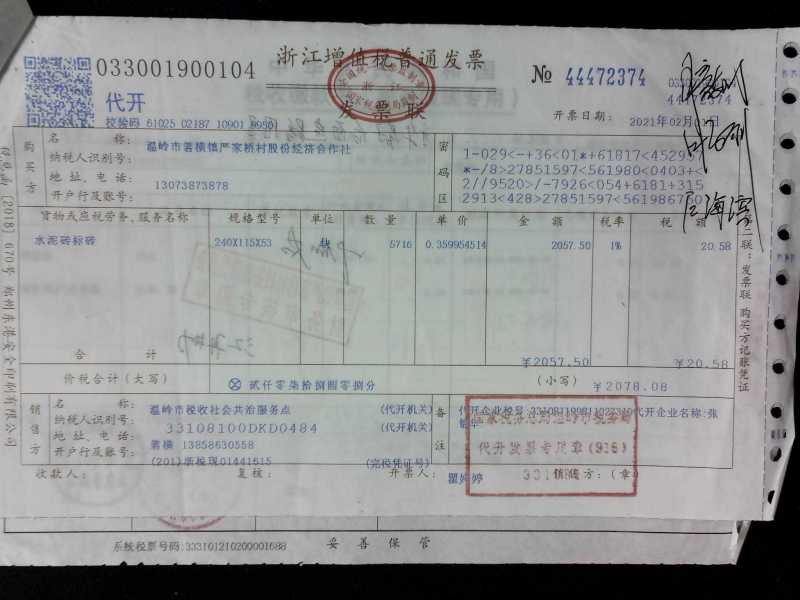 浙江增值税普通发票
033001900104
№ 44472374
代开
发票联
44472374
校验码 61025 02187 10901
开票日期: 2021年02月01日
购买方
名 称: 温岭市箬横镇严家桥村股份经济合作社
纳税人识别号:
地址、电话: 13073873878
开户行及账号:
密码区
1-029<-+36<01*+61817<45295
*-/8>27851597<561980<0403+<
2//9520>/-7926<054+6181+315
2913<428>27851597<56198676
货物或应税劳务、服务名称 规格型号 单位 数量 单价 金额 税率 税额
水泥砖标砖 240X115X53 块 5716 0.359954514 2057.50 1% 20.58
合 计 ¥2057.50 ¥20.58
价税合计(大写) ⊗ 贰仟零柒拾捌圆零捌分 (小写) ¥2078.08
销售方
名 称: 温岭市税收社会共治服务点 (代开机关)
纳税人识别号: 33108100DKD0484 (代开机关)
地址、电话: 箬横 13858630558
开户行及账号: (201)浙税现01441615 (完税凭证号)
备注
代开企业税号: 代开企业名称:张
代开发票专用章(916)
收款人: 复核: 开票人: 瞿婷婷 销售方:(章)
第二联:发票联 购买方记账凭证
(2018)670号 郑州东港安全印刷有限公司
系统税票号码:333101210200001688 妥善保管